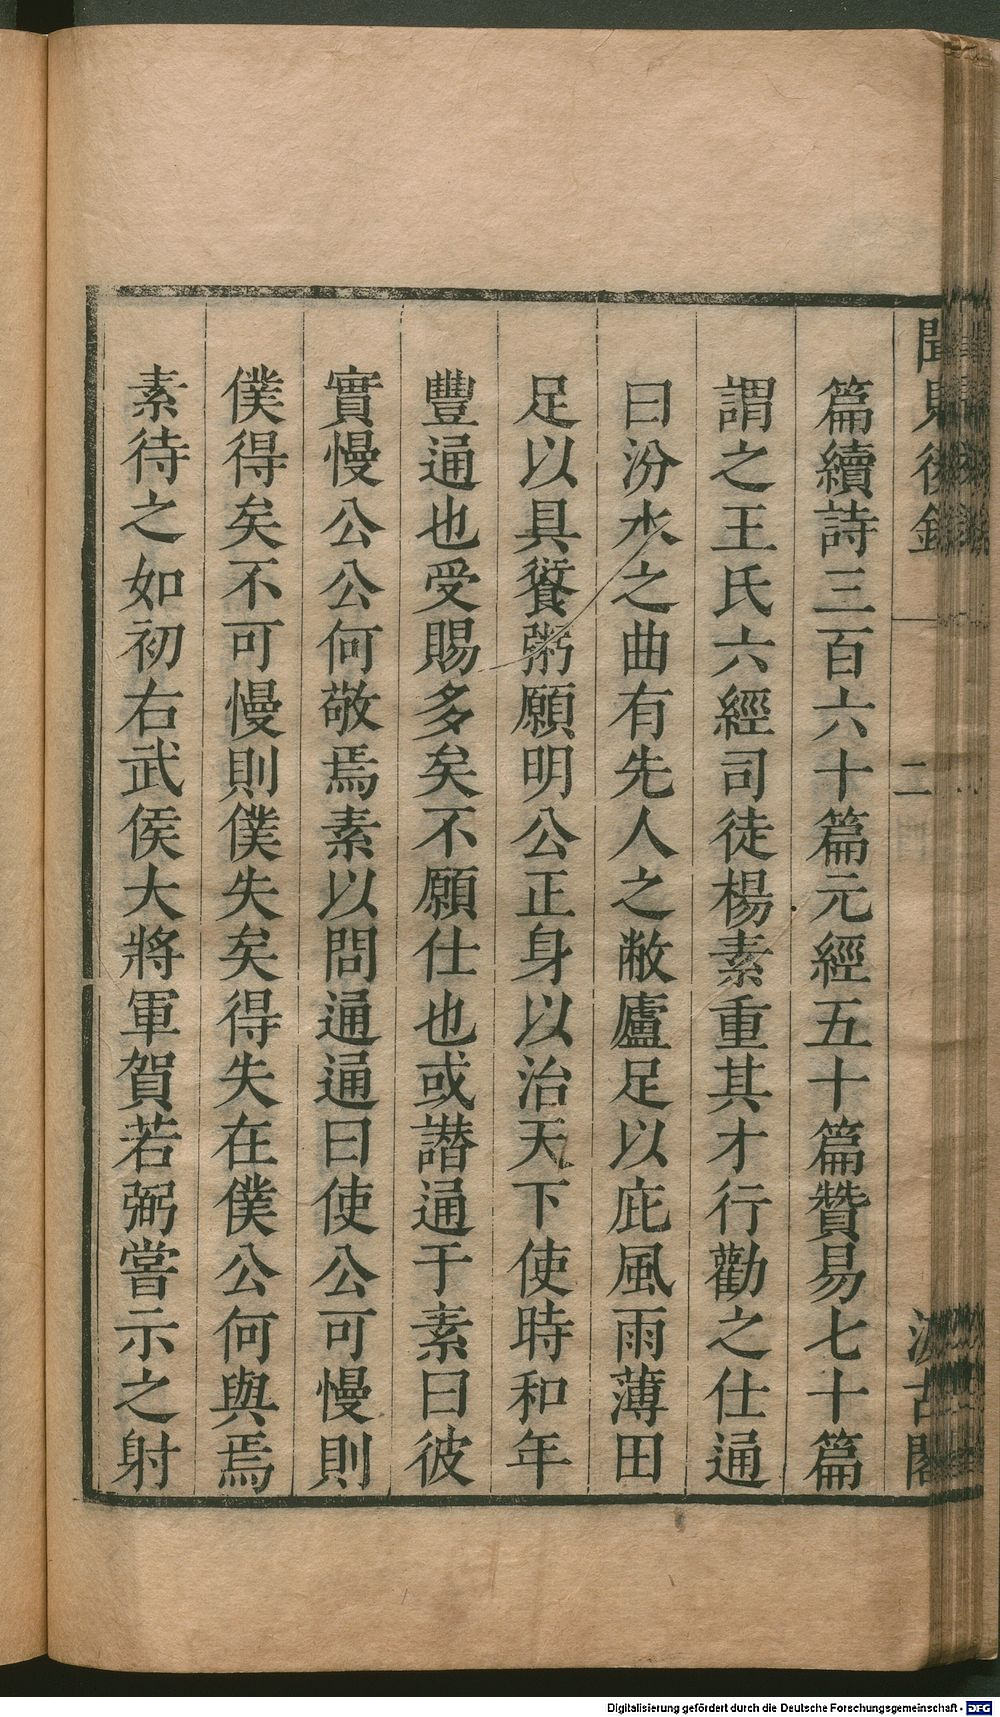 聞見後錄
二
汲古閣
篇續詩三百六十篇元經五十篇贊易七十篇
謂之王氏六經司徒楊素重其才行勸之仕通
曰汾水之曲有先人之敝廬足以庇風雨薄田
足以具餐粥願明公正身以治天下使時和年
豐通也受賜多矣不願仕也或譖通于素曰彼
實慢公公何敬焉素以問通通曰使公可慢則
僕得矣不可慢則僕失矣得失在僕公何與焉
素待之如初右武侯大將軍賀若弼嘗示之射
Digitalisierung gefördert durch die Deutsche Forschungsgemeinschaft - DFG